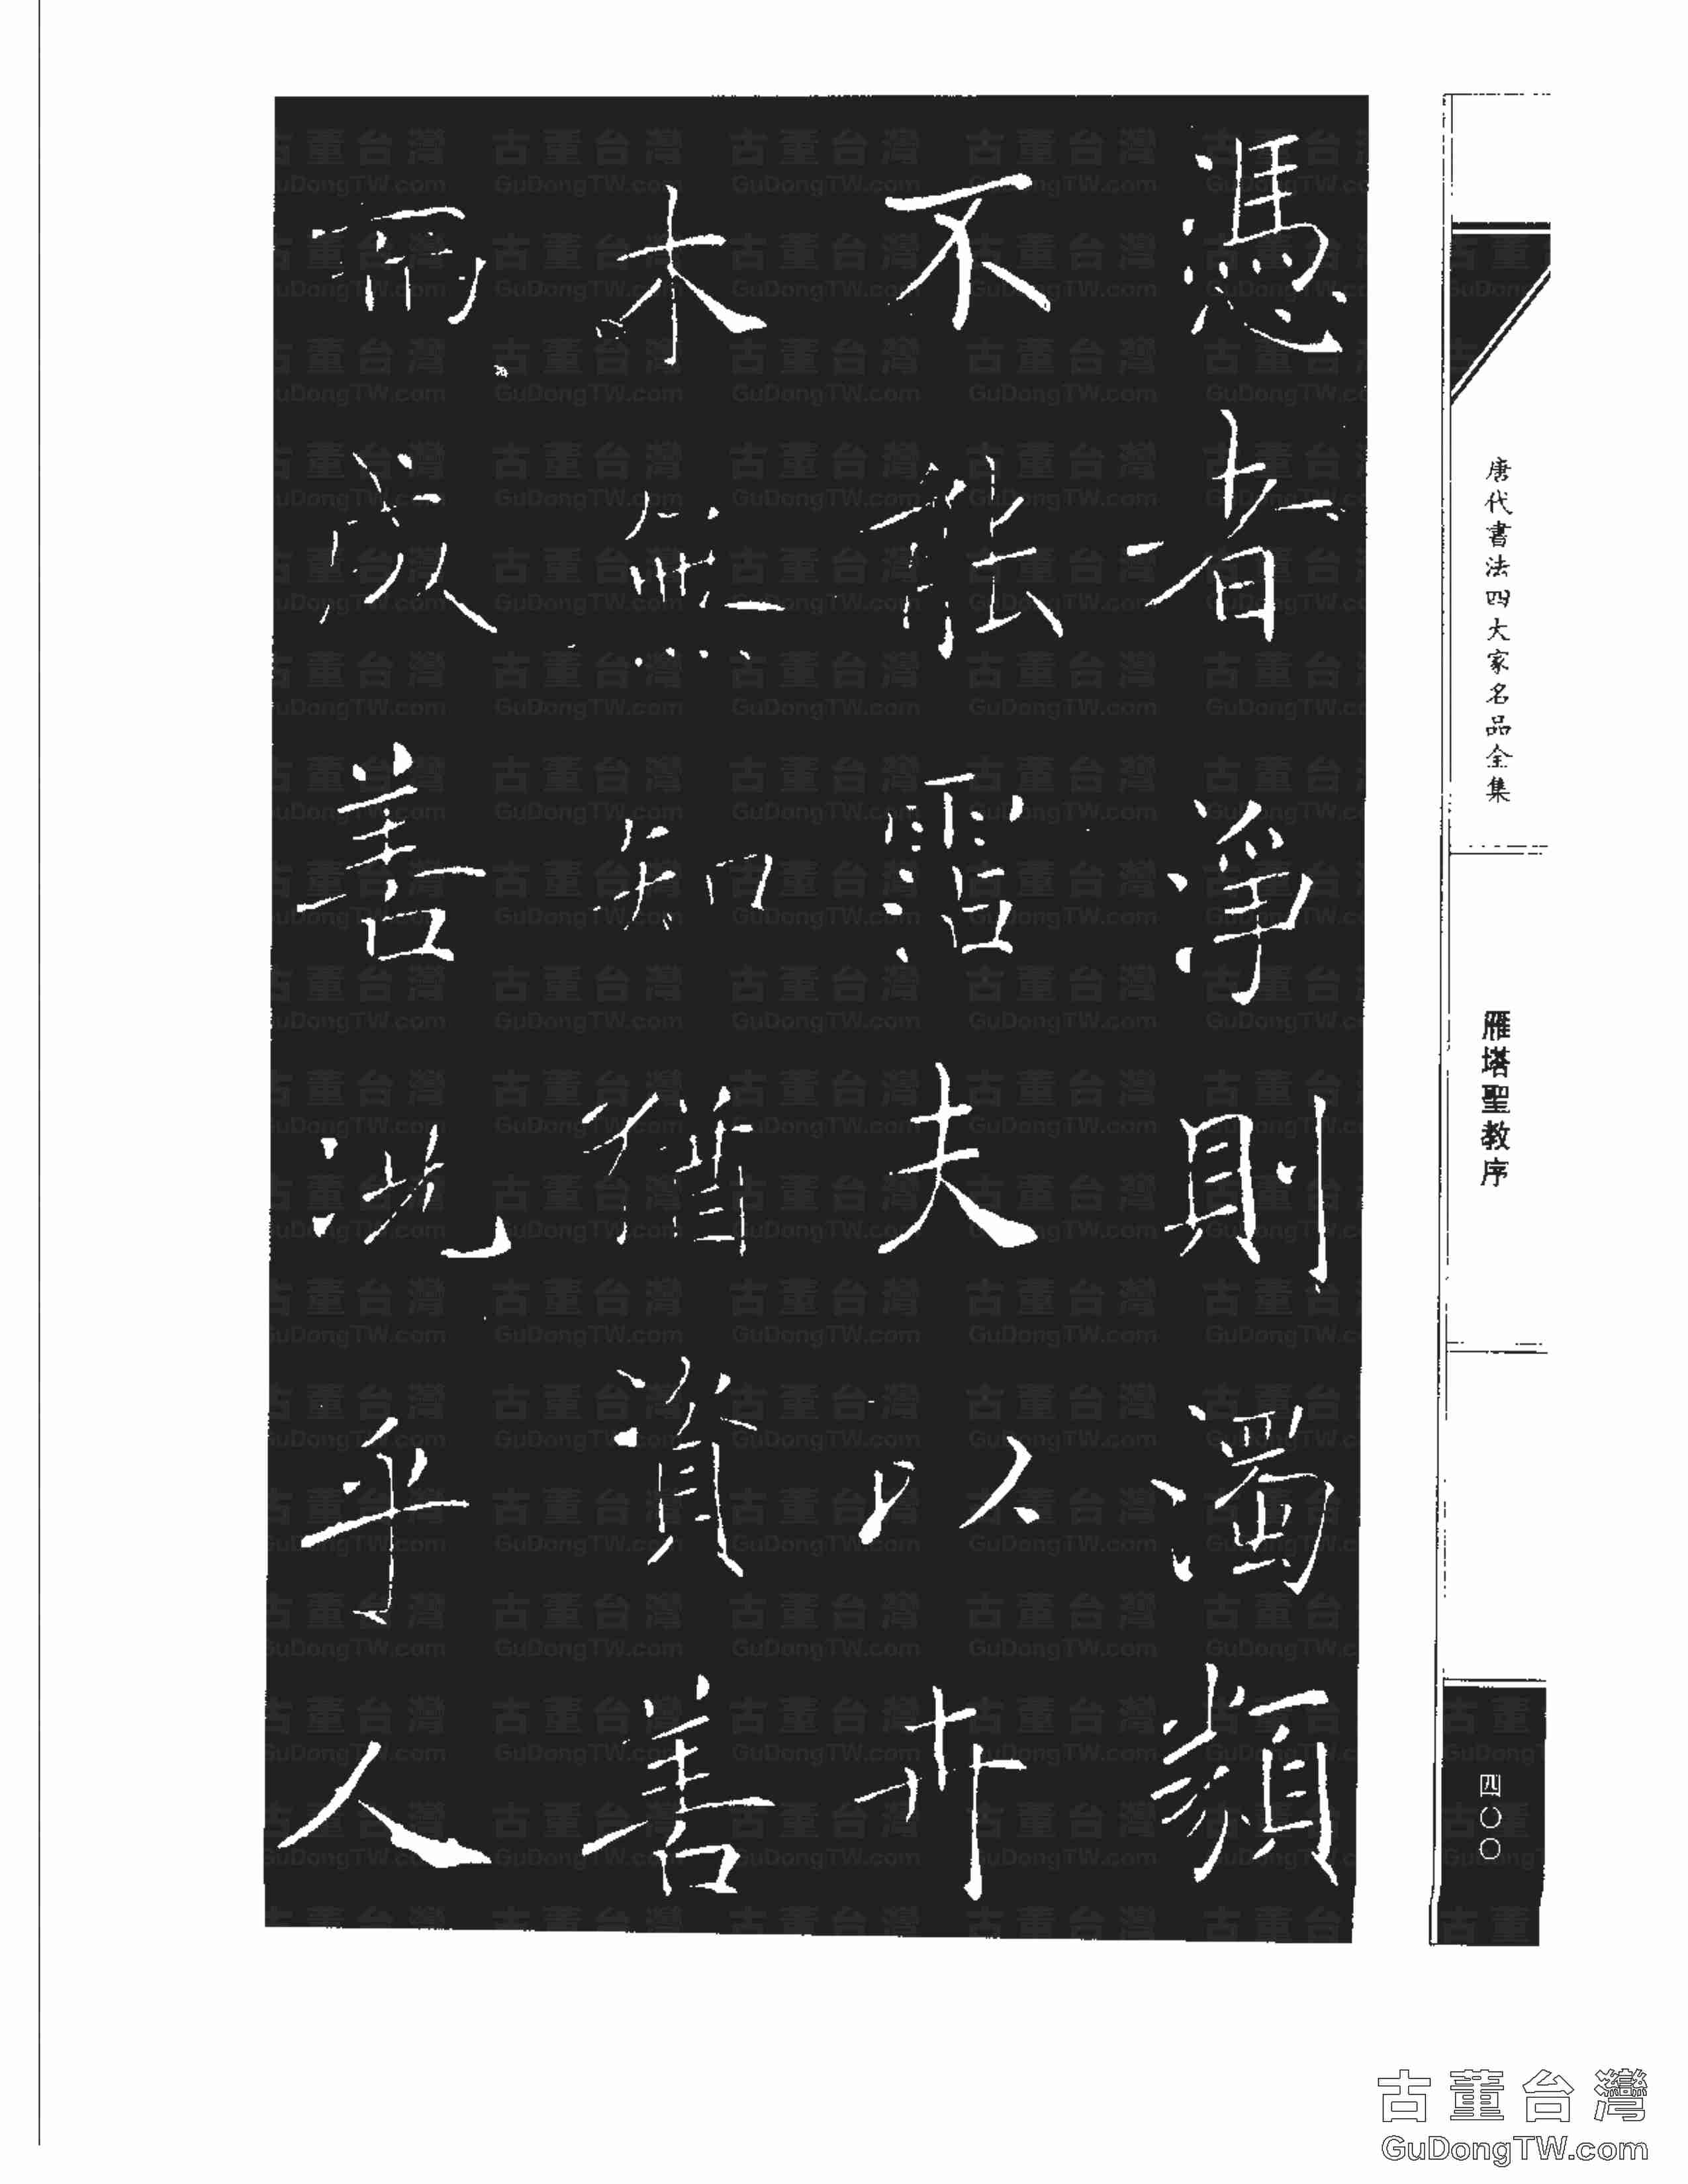 憑者淨則濁類
不能霑夫以卉
木無知猶資善
而成善況乎人
唐代書法四大家名品全集
雁塔聖教序
四〇〇
古董台灣
GuDongTW.com